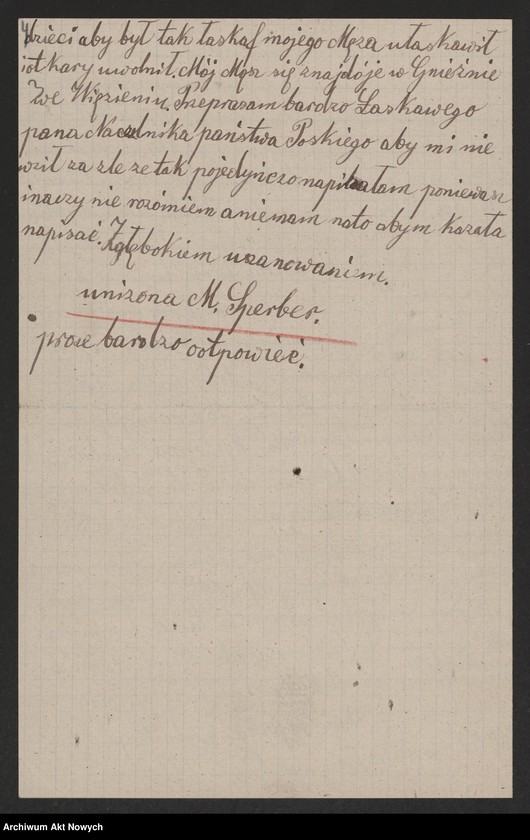 dzieci aby był tak łaskaf mojego Męża ułaskawił
i ot kary uwolnił. Mój Mąsz się znajdóje w Gnieźnie
We Więzieniu. Przeprasam bardzo Łaskawego
pana Naczelnika państwa Poskiego aby mi nie
wził za zle ze tak pojedyńczo napisałam poniewasz
inaczy nie rozómiem a niemam nato abym kazała
napisać. Z głębokiem uzanowaniem.
unizona M. Sperber.
prosze bardzo ootpowieć.
Archiwum Akt Nowych